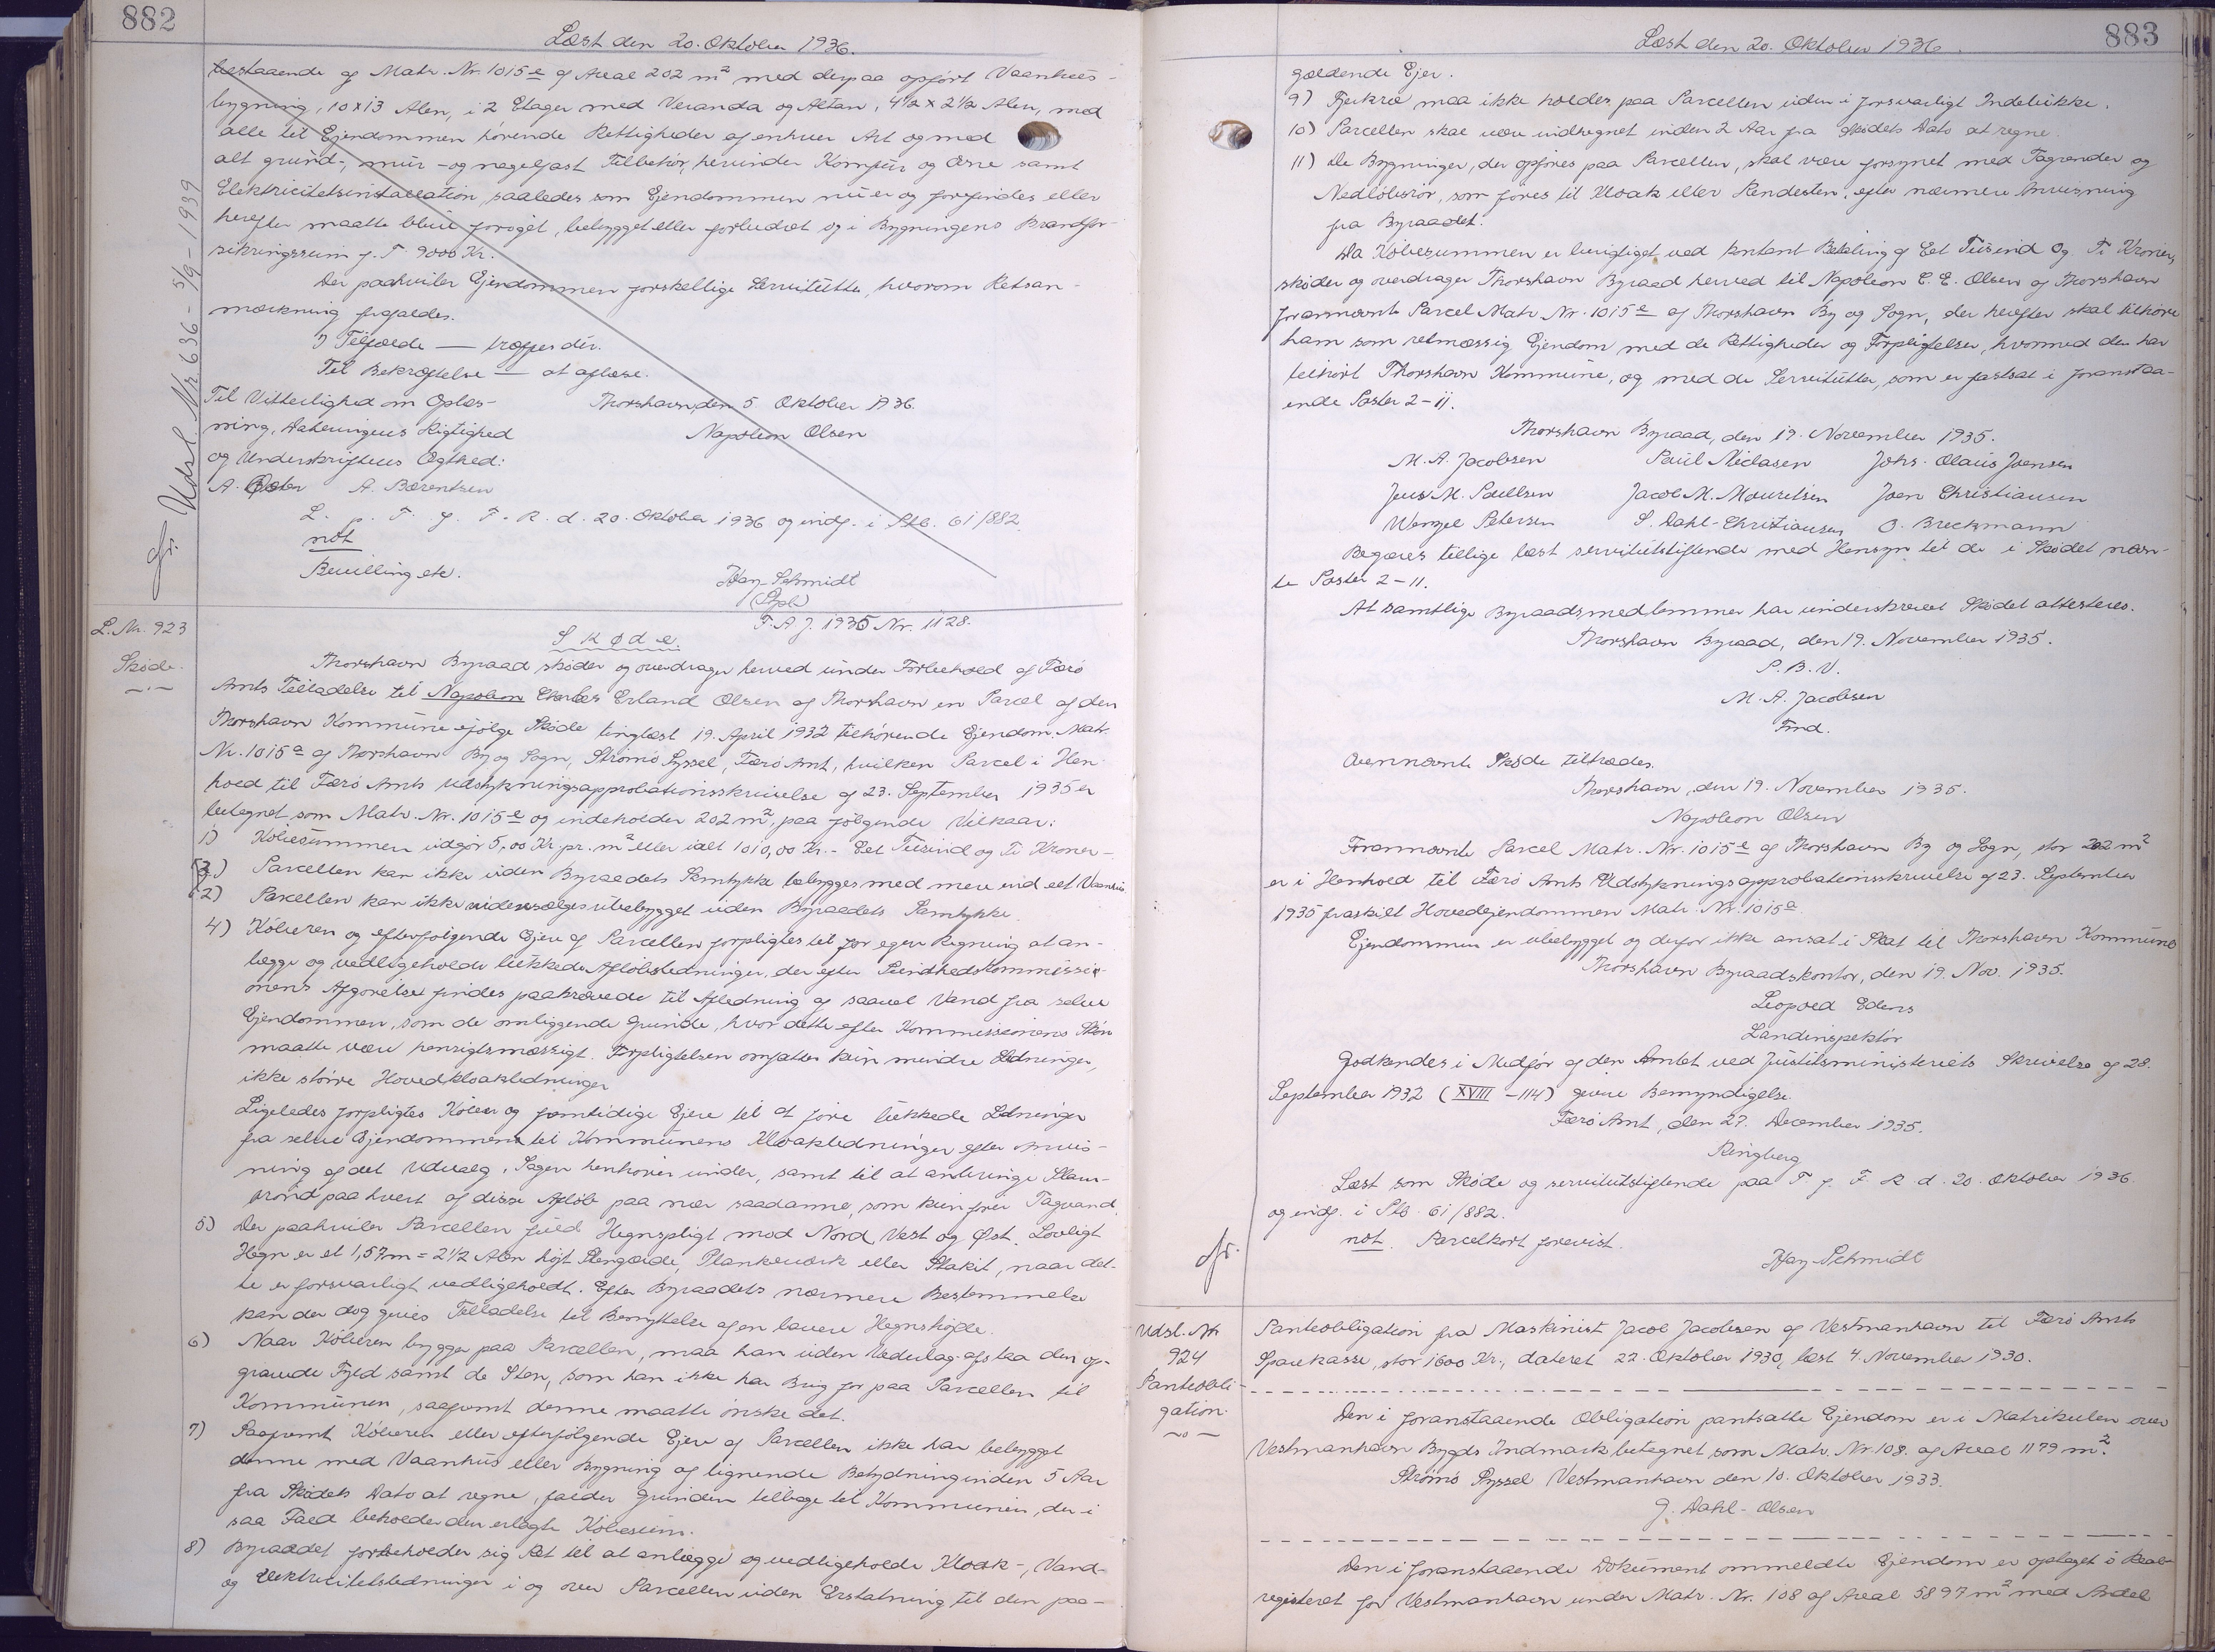 882
Læst den 20. Oktober 1936.
bestaaende af Matr. Nr. 1015e af Areal 202 m² med derpaa opført Vaanhus-
bygning, 10 x 13 Alen, i 2 Etager med Veranda og Altan, 4½ x 2½ Alen, med
alle til Ejendommen hørende Rettigheder af enhver Art og med
alt grund-, mur- og nagelfast Tilbehør, herunder Komfur og Ovne samt
Elektricitetsinstallation, saaledes som Ejendommen nu er og forefindes eller
herefter maatte blive forøget, bebygget eller forbedret og i Bygningens Brandfor-
sikringssum p.T. 9000 Kr.
Der paahviler Ejendommen forskellige Servitutter, hvorom Retsan-
mærkning frafaldes.
I Tilfælde — træffes dér.
Til Bekræftelse — at aflæse.
Til Vitterlighed om Oplæs-
ning, Dateringens Rigtighed
og Underskriftens Ægthed:
Thorshavn, den 5. Oktober 1936.
Napoleon Olsen
A. A. Bærentsen
L. p. T. f. F. R. d. 20. Oktober 1936 og indf. i Skb. 61/882
not
Bevilling etc.
Hay-Schmidt
(Spl)
cfr. Udsl. Nr. 636 - 5/9 - 1939
L. Nr. 923
Skøde.
F. A. J. 1935 Nr. 1128.
Skøde.
Thorshavn Byraad skøder og overdrager herved under Forbehold af Færø
Amts Tilladelse til Napoleon Charles Erland Olsen af Thorshavn en Parcel af den
Thorshavn Kommune ifølge Skøde tinglæst 19. April 1932 tilhørende Ejendom, Matr.
Nr. 1015a af Thorshavn By og Sogn, Strømø Syssel, Færø Amt, hvilken Parcel i Hen-
hold til Færø Amts Udstykningsapprobationsskrivelse af 23. September 1935 er
betegnet som Matr. Nr. 1015e og indeholder 202 m², paa følgende Vilkaar:
1) Købesummen udgør 5,00 Kr. pr. m² eller ialt 1010,00 Kr. - Eet Tusind og Ti Kroner -
3) Parcellen kan ikke uden Byraadets Samtykke bebygges med mere end eet Vaanhus
2) Parcellen kan ikke videresælges ubebygget uden Byraadets Samtykke.
4) Køberen og efterfølgende Ejere af Parcellen forpligtes til for egen Regning at an-
lægge og vedligeholde lukkede Afløbsledninger, der efter Sundhedskommissio-
nens Afgørelse findes paakrævede til Afledning af saavel Vand fra selve
Ejendommen, som de omliggende Grunde, hvor dette efter Kommissionens Skøn
maatte være hensigtsmæssigt. Forpligtelsen omfatter kun mindre Ledninger,
ikke større Hovedkloakledninger
Ligeledes forpligtes Køber og fremtidige Ejere til at føre lukkede Ledninger
fra selve Ejendommen til Kommunens Kloakledninger efter Anvis-
ning af det Udvalg, Sagen henhører under, samt til at anbringe Slam-
brønd paa hvert af disse Afløb paa nær saadanne, som kun fører Tagvand.
5) Der paahviler Parcellen fuld Hegnspligt mod Nord, Vest og Øst. Lovligt
Hegn er et 1,57 m = 2½ Alen højt Stengærde, Plankeværk eller Stakit, naar det-
te er forsvarligt vedligeholdt. Efter Byraadets nærmere Bestemmelse
kan der dog gives Tilladelse til Benyttelse af en lavere Hegnshøjde.
6) Naar Køberen bygger paa Parcellen, maa han uden Vederlag afstaa den op-
gravede Fyld samt de Sten, som han ikke har Brug for paa Parcellen til
Kommunen, saafremt denne maatte ønske det.
7) Saafremt Køberen eller efterfølgende Ejere af Parcellen ikke har bebygget
denne med Vaanhus eller Bygning af lignende Betydning inden 5 Aar
fra Skødets Dato at regne, falder Grunden tilbage til Kommunen, der i
saa Fald beholder den erlagte Købesum.
8) Byraadet forbeholder sig Ret til at anlægge og vedligeholde Kloak-, Vand-
og Elektricitetsledninger i og over Parcellen uden Erstatning til den paa-
883
Læst den 20. Oktober 1936.
gældende Ejer.
9) Fjerkræ maa ikke holdes paa Parcellen uden i forsvarligt Indelukke.
10) Parcellen skal være indhegnet inden 2 Aar fra Skødets Dato at regne.
11) De Bygninger, der opføres paa Parcellen, skal være forsynet med Tagrender og
Nedløbsrør, som føres til Kloak eller Rendesten, efter nærmere Anvisning
fra Byraadet.
Da Købesummen er berigtiget ved kontant Betaling af Eet Tusind og Ti Kroner,
skøder og overdrager Thorshavn Byraad herved til Napoleon C. E. Olsen af Thorshavn
forannævnte Parcel Matr. Nr. 1015e af Thorshavn By og Sogn, der herefter skal tilhøre
ham som retmæssig Ejendom med de Rettigheder og Forpligtelser, hvormed den har
tilhørt Thorshavn Kommune, og med de Servitutter, som er fastsat i foranstaa-
ende Poster 2-11.
Thorshavn Byraad, den 19. November 1935.
M. A. Jacobsen Paul Niclasen Johs. Olaus Joensen
Jens M. Poulsen Jacob M. Mouritsen Joen Christiansen
Wenzel Petersen S. Dahl-Christiansen O. Breckmann
Begæres tillige læst servitutstiftende med Hensyn til de i Skødet nævn-
te Poster 2-11.
At samtlige Byraadsmedlemmer har underskrevet Skødet attesteres.
Thorshavn Byraad, den 19. November 1935.
P. B. V.
M. A. Jacobsen
Fmd.
Ovennævnte Skøde tiltrædes.
Thorshavn, den 19. November 1935.
Napoleon Olsen
Forannævnte Parcel Matr. Nr. 1015e af Thorshavn By og Sogn, stor 202 m²
er i Henhold til Færø Amts Udstykningsapprobationsskrivelse af 23. September
1935 fraskilt Hovedejendommen Matr. Nr. 1015a.
Ejendommen er ubebygget og derfor ikke ansat i Skat til Thorshavn Kommune
Thorshavn Byraadskontor, den 19. Nov. 1935.
Leopold Edens
Landinspektør
Godkendes i Medfør af den Amtet ved Justitsministeriets Skrivelse af 28.
September 1932 (XVIII - 114) givne Bemyndigelse.
Færø Amt, den 27. December 1935.
Ringberg
Læst som Skøde og servitutstiftende paa T f. F. R. d. 20. Oktober 1936.
og indf. i Skb. 61/882.
not. Parcelkort forevist.
cfr.
Hay-Schmidt
Udsl. Nr.
924
Panteobli-
gation.
Panteobligation fra Maskinist Jacob Jacobsen af Vestmanhavn til Færø Amts
Sparekasse, stor 1600 Kr., dateret 22. Oktober 1930, læst 4. November 1930.
Den i foranstaaende Obligation pantsatte Ejendom er i Matrikulen over
Vestmanhavn Bygds Indmark betegnet som Matr. Nr. 108. af Areal 1179 m².
Strømø Syssel Vestmanhavn den 10. Oktober 1933.
J. Dahl-Olsen
Den i foranstaaende Dokument ommeldte Ejendom er optaget i Real-
registeret for Vestmanhavn under Matr. Nr. 108 af Areal 5897 m² med Andel